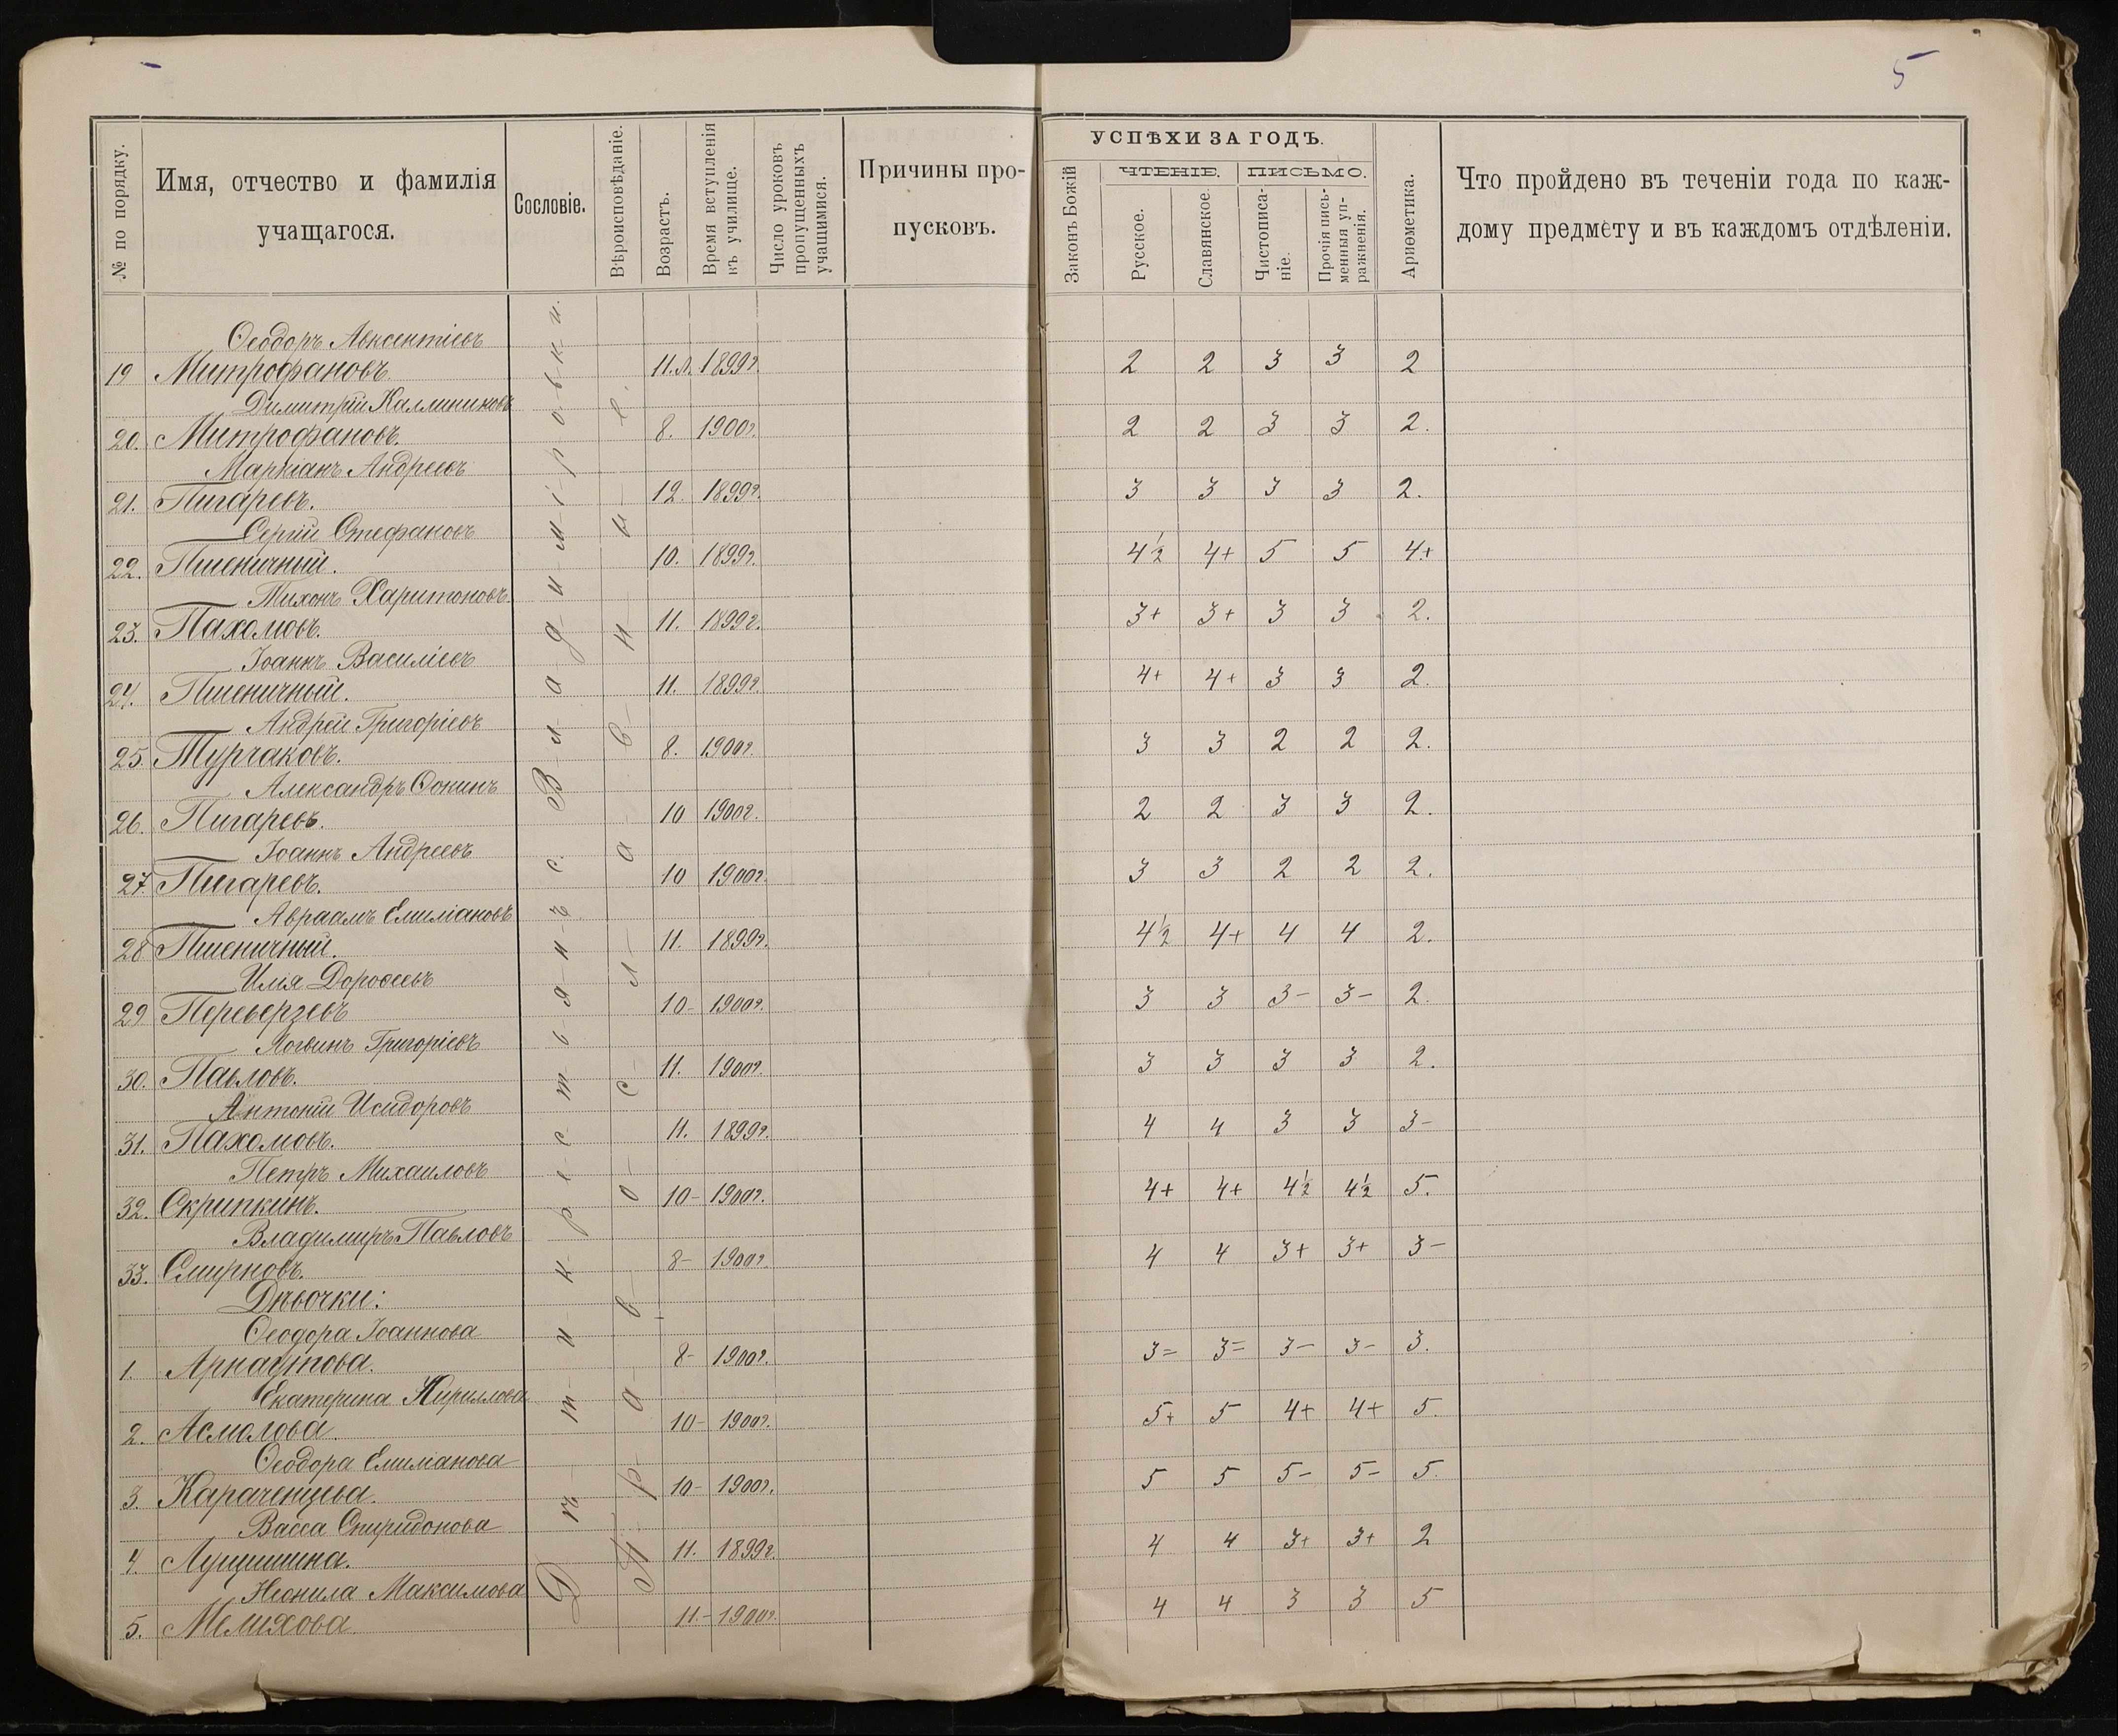 5
№ по порядку.
Имя, отчество и фамилія учащагося.
Сословіе.
Вѣроисповѣданіе.
Возрастъ.
Время вступленія въ училище.
Число уроковъ пропущенныхъ учащимися.
Причины пропусковъ.
УСПѢХИ ЗА ГОДЪ.
Законъ Божій
ЧТЕНІЕ.
Русское.
Славянское.
ПИСЬМО.
Чистописаніе.
Прочія письменныя упражненія.
Ариѳметика.
Что пройдено въ теченіи года по каждому предмету и въ каждомъ отдѣленіи.
Дѣти крестьянъ с. Владиміровки.
Православнаго
Ѳеодоръ Авксентіевъ
19 Митрофановъ. 11.л. 1899г. 2 2 3 3 2
Димитрій Каллиниковъ
20. Митрофановъ. 8. 1900г. 2 2 3 3 2.
Маркіанъ Андреевъ
21. Пигаревъ. 12. 1899г. 3 3 3 3 2.
Сергій Стефановъ
22. Пшеничный. 10. 1899г. 4½ 4+ 5 5 4+
Тихонъ Харитоновъ
23. Пахомовъ. 11. 1899г. 3+ 3+ 3 3 2.
Іоаннъ Василіевъ
24. Пшеничный. 11. 1899г. 4+ 4+ 3 3 2.
Андрей Григоріевъ
25. Турчаковъ. 8. 1900г. 3 3 2 2 2.
Александръ Ѳокинъ
26. Пигаревъ. 10 1900г. 2 2 3 3 2.
Іоаннъ Андреевъ
27. Пигаревъ. 10 1900г. 3 3 2 2 2.
Авраамъ Емиліановъ
28 Пшеничный. 11. 1899г. 4½ 4+ 4 4 2.
Илія Дороѳеевъ
29 Переверзевъ 10- 1900г. 3 3 3- 3- 2.
Логвинъ Григоріевъ
30. Павловъ. 11. 1900г. 3 3 3 3 2.
Антоній Исидоровъ
31. Пахомовъ. 11. 1899г. 4 4 3 3 3-
Петръ Михаиловъ
32. Скрипкинъ. 10- 1900г. 4+ 4+ 4½ 4½ 5.
Владимиръ Павловъ
33. Смирновъ. 8- 1900г. 4 4 3+ 3+ 3-
Дѣвочки:
Ѳеодора Іоаннова
1. Арнаутова. 8- 1900г. 3= 3= 3- 3- 3.
Екатерина Кириллова
2. Асмолова. 10- 1900г. 5+ 5 4+ 4+ 5.
Ѳеодора Емиліанова
3. Караченцева. 10- 1900г. 5 5 5- 5- 5.
Васса Спиридонова
4. 11. 1899г. 4 4 3+ 3+ 2
Неонила Максимова
5. Мелихова. 11.- 1900г. 4 4 3 3 5